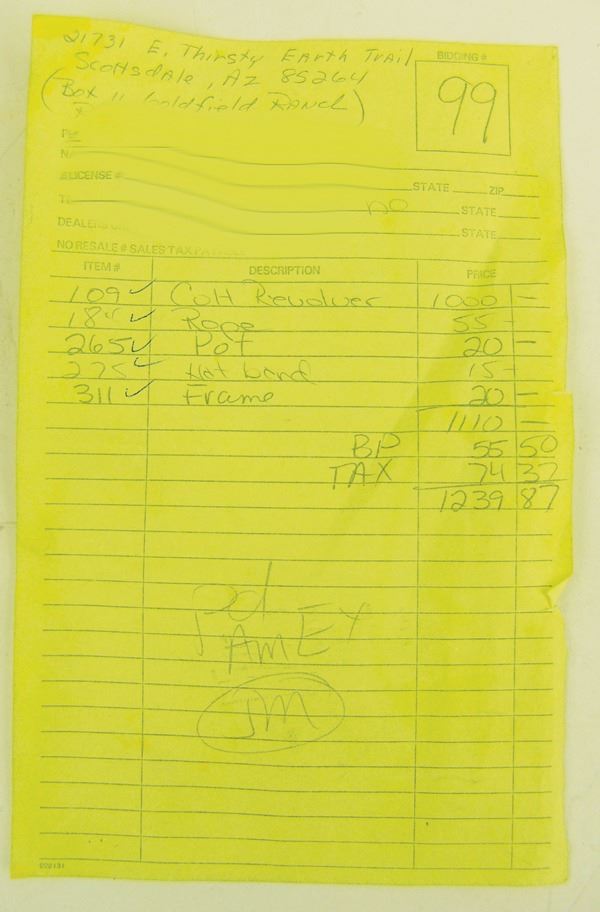 21731 E. Thirsty Earth Trail
Scottsdale, AZ 85264
(Box 11 Goldfield Ranch)
BIDDING #
99
LICENSE # STATE ZIP
no STATE
DEALERS STATE
NO RESALE # SALES TAX
ITEM # DESCRIPTION PRICE
109 ✓ Colt Revolver 1000 —
✓ Rope 55 -
265 ✓ Pot 20 —
275 ✓ Hat band 15 -
311 ✓ Frame 20 —
1110 —
BP 55 50
TAX 74 37
1239 87
pd
AMEX
JM